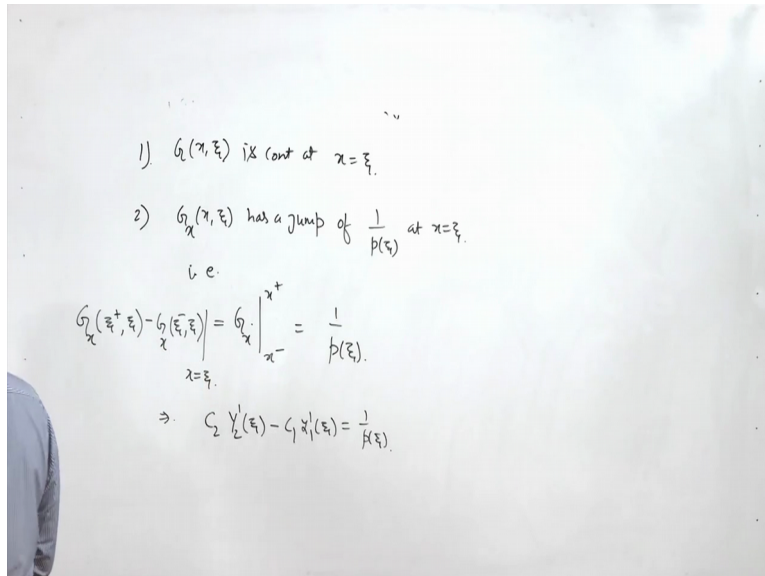 1) G(x, ξ) is cont at x = ξ.
2) G_x(x, ξ) has a jump of 1/p(ξ) at x = ξ.
i.e.
G_x(ξ⁺, ξ) - G_x(ξ⁻, ξ)|_{x=ξ.} = G_x|_{x⁻}^{x⁺} = 1/p(ξ).
⇒ C₂ y₂'(ξ) - C₁ y₁'(ξ) = 1/p(ξ).